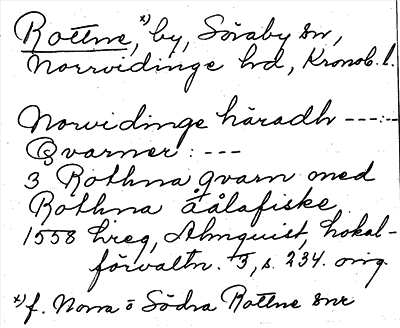 Rottne,*) by, Söraby sn,
Norrvidinge hd, Kronob. l.
Norvidinge häradh ---:-
Qvarner: ---
3 Rothna qvarn med
Rothna åålafiske
1558 hreg, Almquist, Lokal-
förvaltn. 3, s. 234. orig.
*) f. Norra o Södra Rottne snr